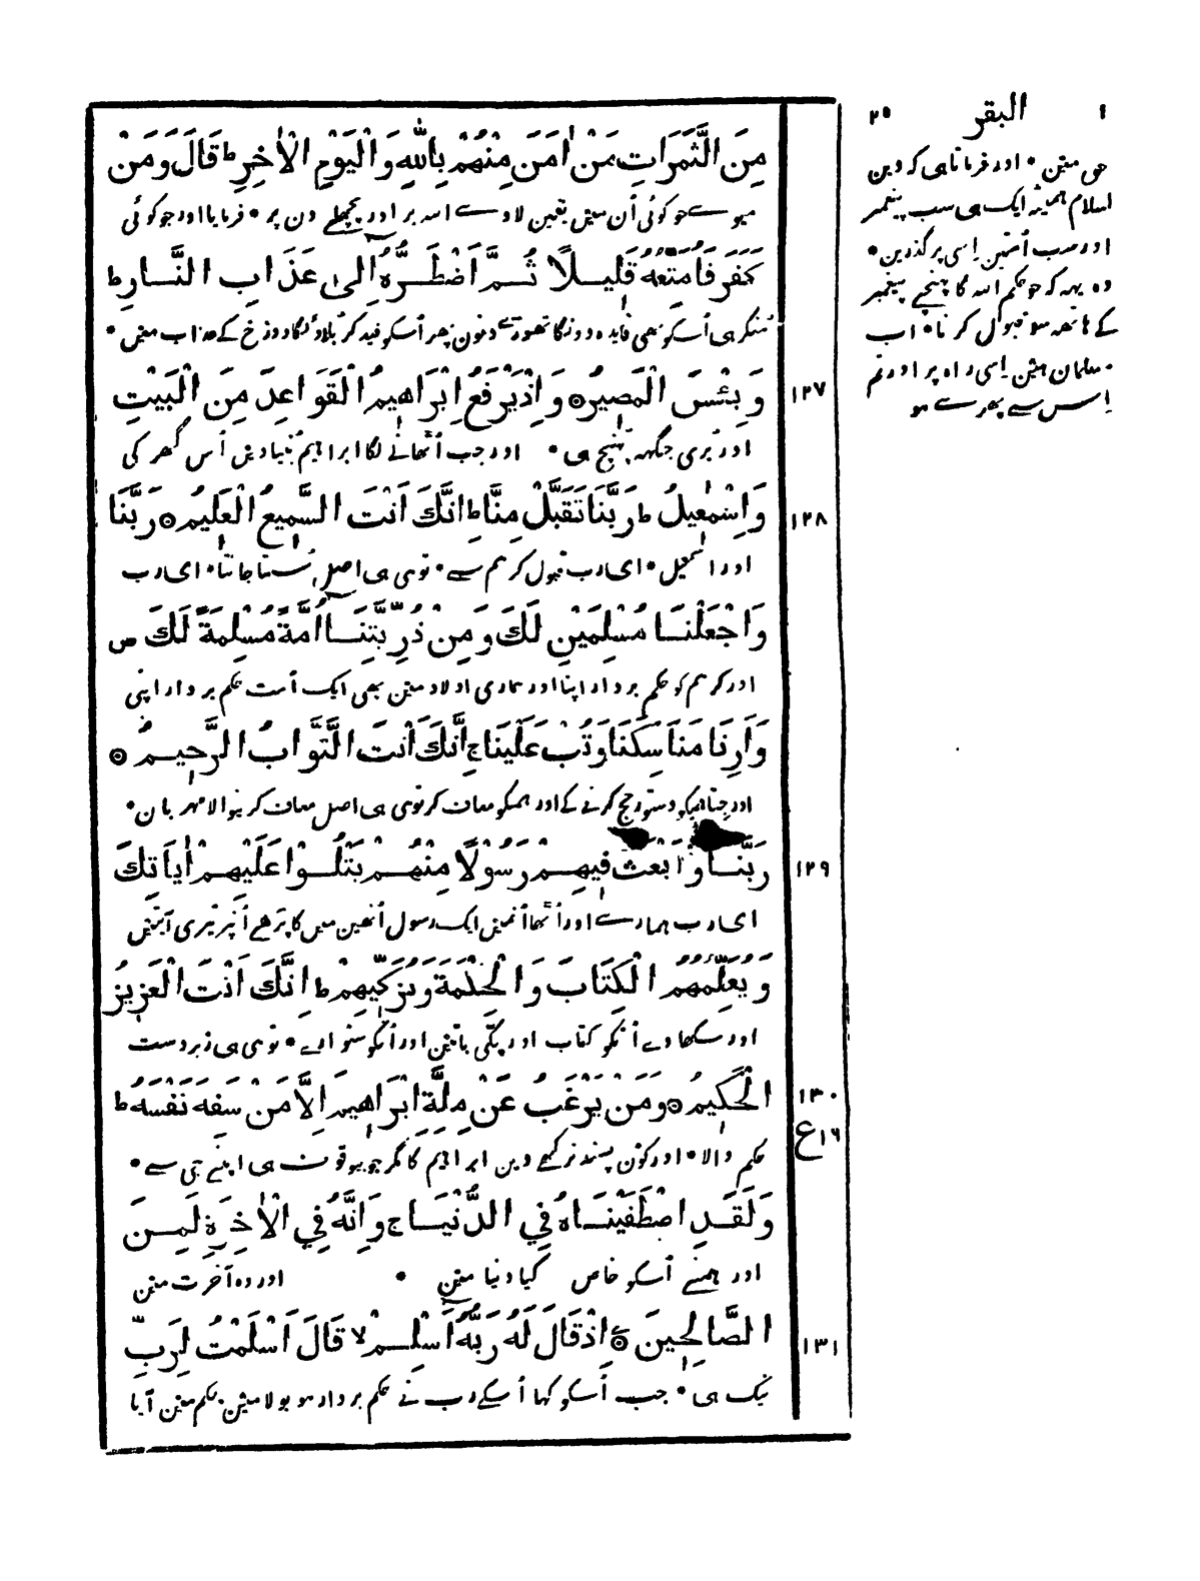 ١ البقر ٢٥
مِنَ الثَّمَرَاتِ مَنْ اٰمَنَ مِنْهُمْ بِاللّٰهِ وَالْيَوْمِ الْاٰخِرِ ط قَالَ وَمَنْ
میوے جو کوئی اُن میں یقین لاوے اللہ پر اور پچھلے دن پر • فرمایا اور جو کوئی
كَفَرَ فَاُمَتِّعُهُ قَلِيلًا ثُمَّ اَضْطَرُّهُ اِلىٰ عَذَابِ النَّارِ ط
منکر ہی اُسکو بھی فایدہ دونگا تھورے دنون پھر اُسکو قید کر بلاؤنگا دوزخ کے عذاب میں •
وَبِئْسَ الْمَصِيرُ ۝ وَاِذْ يَرْفَعُ اِبْرَاهِيمُ الْقَوَاعِدَ مِنَ الْبَيْتِ ١٢٧
اور بُری جگہہ پہنچ ہی • اور جب اُٹھانے لگا ابراہیم بُنیادیں اُس گھر کی
وَاِسْمٰعِيلُ ط رَبَّنَا تَقَبَّلْ مِنَّا ط اِنَّكَ اَنْتَ السَّمِيعُ الْعَلِيمُ ۝ رَبَّنَا ١٢٨
اور اسمٰعیل • ای رب قبول کر ہم سے • توہی ہی اصل سُنتا جانتا • ای رب
وَاجْعَلْنَا مُسْلِمَيْنِ لَكَ وَمِنْ ذُرِّيَّتِنَا اُمَّةً مُسْلِمَةً لَكَ ص
اور کر ہم کو حکم بردار اپنا اور ہماری اولاد میں بھی ایک اُمت حکم بردار اپنی
وَاَرِنَا مَنَاسِكَنَا وَتُبْ عَلَيْنَا ج اِنَّكَ اَنْتَ التَّوَّابُ الرَّحِيمُ ۝
اور جتا ہمکو دستور حج کرنے کے اور ہمکو معاف کر توہی ہی اصل معاف کرنیوالا مہربان •
رَبَّنَا وَابْعَثْ فِيهِمْ رَسُوْلًا مِنْهُمْ يَتْلُوْا عَلَيْهِمْ اٰيَاتِكَ ١٢٩
ای رب ہمارے اور اُٹھا اُنمیں ایک رسول اُنھین میں کا پڑھے اُنپر تیری آیتیں
وَيُعَلِّمُهُمُ الْكِتَابَ وَالْحِكْمَةَ وَيُزَكِّيهِمْ ط اِنَّكَ اَنْتَ الْعَزِيزُ
اور سکھاوے اُنکو کتاب اور پکّی باتیں اور اُنکو سنوارے • توہی ہی زبردست
الْحَكِيمُ ۝ وَمَنْ يَرْغَبُ عَنْ مِلَّةِ اِبْرَاهِيمَ اِلَّا مَنْ سَفِهَ نَفْسَهُ ط ١٣٠
ع ١٦
حکم والا • اور کون پسند نرکھے دین ابراہیم کا مگر جو بیوقوف ہی اپنے جی سے •
وَلَقَدِ اصْطَفَيْنَاهُ فِي الدُّنْيَا ج وَاِنَّهُ فِي الْاٰخِرَةِ لَمِنَ
اور ہمنے اُسکو خاص کیا دنیا میں • اور وہ آخرت میں
الصَّالِحِينَ ۝ اِذْ قَالَ لَهُ رَبُّهُ اَسْلِمْ لا قَالَ اَسْلَمْتُ لِرَبِّ ١٣١
نیک ہی • جب اُسکو کہا اُسکے رب نے حکم بردار ہو بولا میں حکم میں آیا
حق میں • اور فرماتا ہی کہ دین
اسلام ہمیشہ ایک ہی سب پیغمبر
اور سب اُمتیں اِسی پر گذریں •
وہ یہہ کہ جو حکم اللہ کا پہنچے پیغمبر
کے ہاتھہ سو قبول کرنا • اب
مسلمان ہیں اِسی راہ پر اور تم
اِس سے پھرے ہو